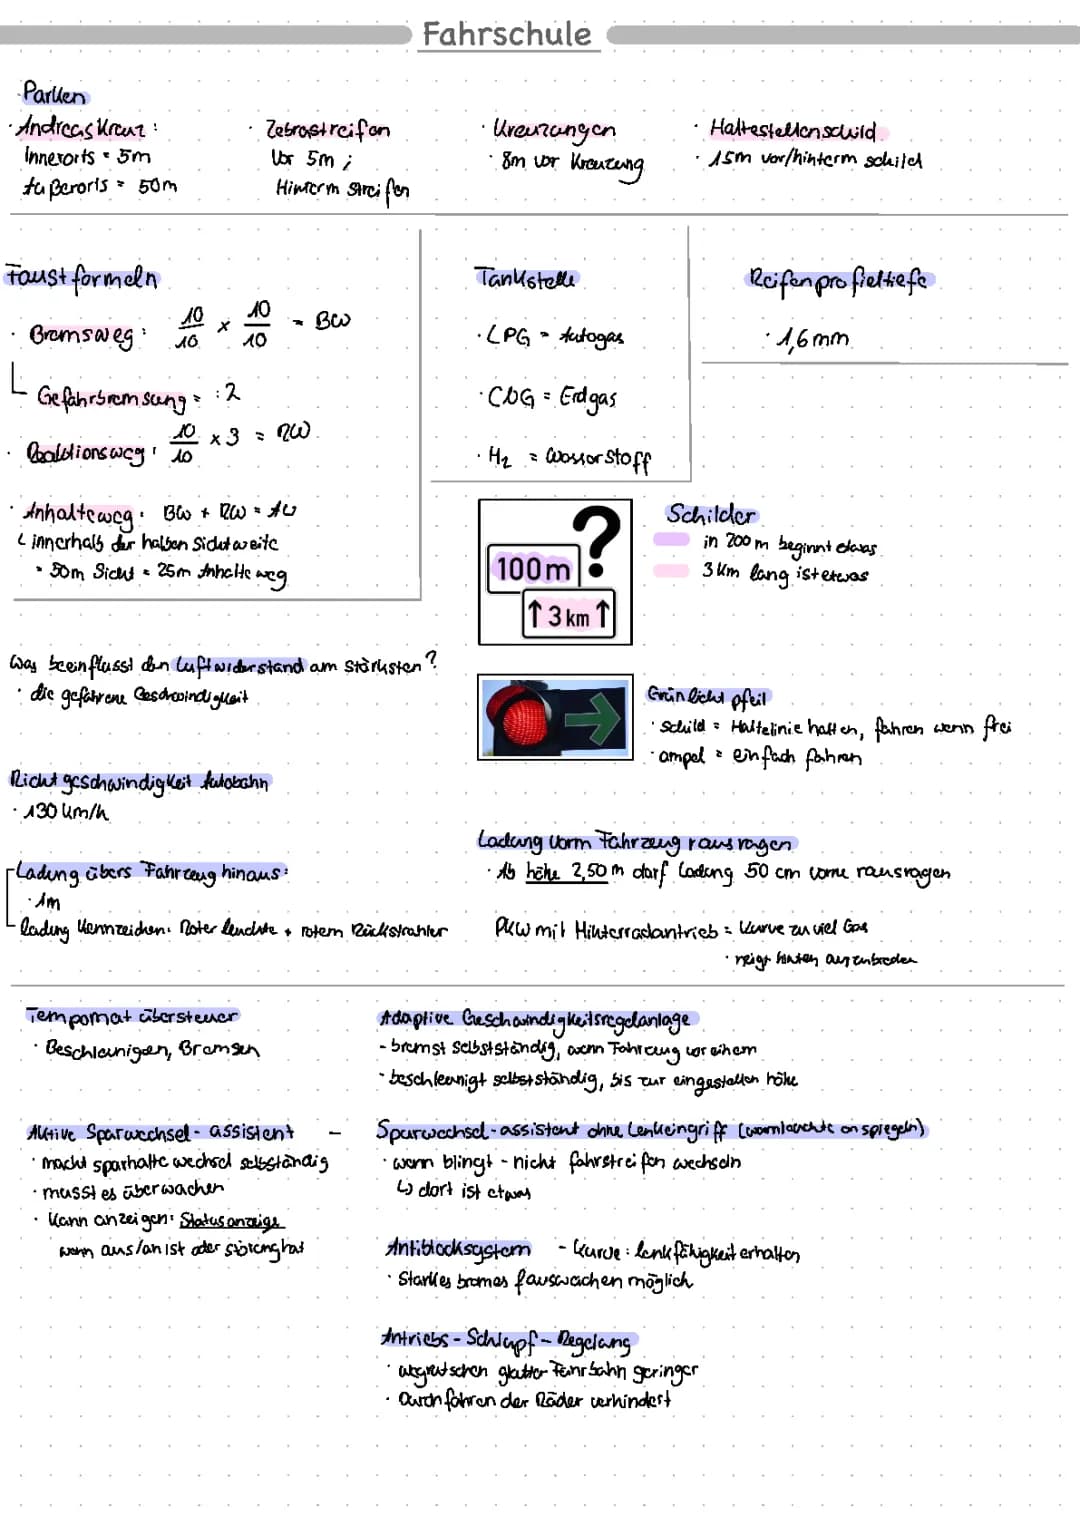 Fahrschule
Parken
· Andreas Kreuz :
Innerorts = 5m
Außerorts = 50m
· Zebrastreifen
Vor 5m ;
Hinterm Streifen
· Kreuzungen
· 8m vor Kreuzung
· Haltestellenschild
· 15m vor/hinterm schild
Faustformeln
· Bremsweg: 10/10 x 10/10 = BW
Gefahrbremsung = :2
· Reaktionsweg: 10/10 x 3 = RW
· Anhalteweg: BW + RW = AW
innerhalb der halben Sichtweite
· 50m Sicht = 25m Anhalteweg
Tankstelle
· LPG = Autogas
· CNG = Erdgas
· H₂ = Wasserstoff
Reifenprofieltiefe
· 1,6 mm
?
100 m
↑ 3 km ↑
Schilder
in 200 m beginnt etwas
3 km lang ist etwas
Was beeinflusst den Luftwiderstand am Stärksten?
· die gefahrene Geschwindigkeit
Grünlicht pfeil
· Schild = Haltelinie halten, fahren wenn frei
· ampel = einfach fahren
Richtgeschwindigkeit Autobahn
· 130 km/h
Ladung vorm Fahrzeug rausragen
· Ab höhe 2,50 m darf Ladung 50 cm vorne rausragen
Ladung übers Fahrzeug hinaus:
· 1m
ladung Kennzeichen: Roter leuchte + rotem Rückstrahler
PKW mit Hinterradantrieb = Kurve zu viel Gas
· neigt hinten auszubrechen
Tempomat übersteuer
· Beschleunigen, Bremsen
Adaptive Geschwindigkeitsregelanlage
- bremst selbstständig, wenn Fahrzeug vor einem
· beschleunigt selbstständig, bis zur eingestellten höhe
Aktive Spurwechsel- assistent -
· macht spurhalte wechsel selbständig
· musst es überwachen
· Kann anzeigen: Statusanzeige
wenn aus/an ist oder störung hat
Spurwechsel-assistent ohne Lenkeingriff (warnleuchte an spiegeln)
· wenn blingt - nicht fahrstreifen wechseln
↳ dort ist etwas
Antiblocksystem - Kurve: lenkfähigkeit erhalten
· Starkes bremes möglich
Antriebs-Schlupf-Regelung
· wegrutschen glatter Fahrbahn geringer
· Durchfahren der Räder verhindert